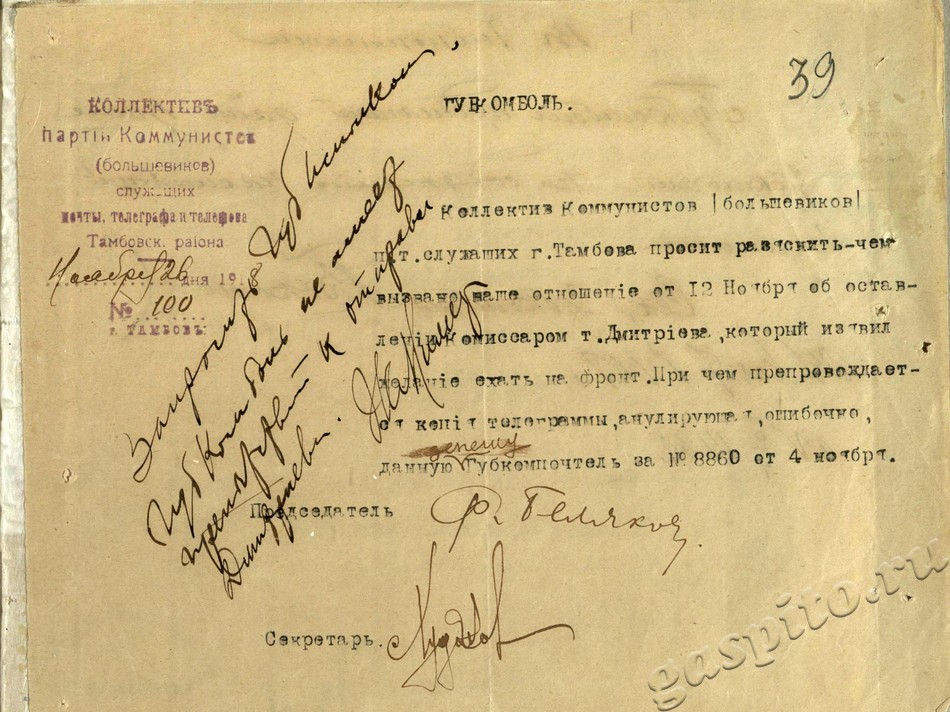 39
КОЛЛЕКТИВЪ
Партіи Коммунистов
(большевиков)
служащих
почты, телеграфа и телефона
Тамбовск. района
Ноября 26 дня 1918
№ 100
г. ТАМБОВЪ.
ГУБКОМБОЛЬ.
Коллектив Коммунистов |большевиков|
п.т. служаших г. Тамбова просит раз'яснить-чем
вызвано ваше отношеніе от 12 Ноября об остав-
леніи комиссаром т.Дмитріева,который из'явил
желаніе ехать на фронт.При чем препровождает-
ся копія телеграммы,анулирующая,ошибочно,
депешу
данную Губкомпочтель за № 8860 от 4 ноября.
Запросить Губисполком.
Губкомболь не имеет
препятствий к отправке
Дмитриева.
Председатель Ф. Беляков.
Секретарь.
gaspito.ru